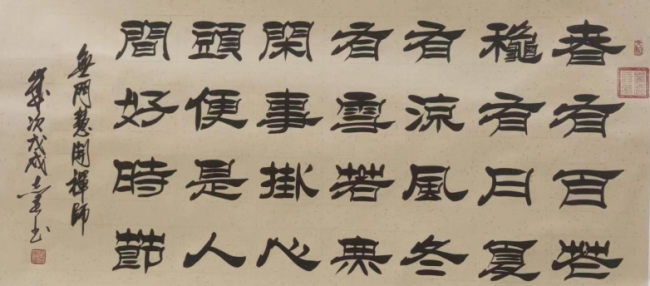 春有百花
龝有月夏
有涼風冬
有雪若無
閑事掛心
頭便是人
間好時節
無門慧開禪師
歲次戊戌書